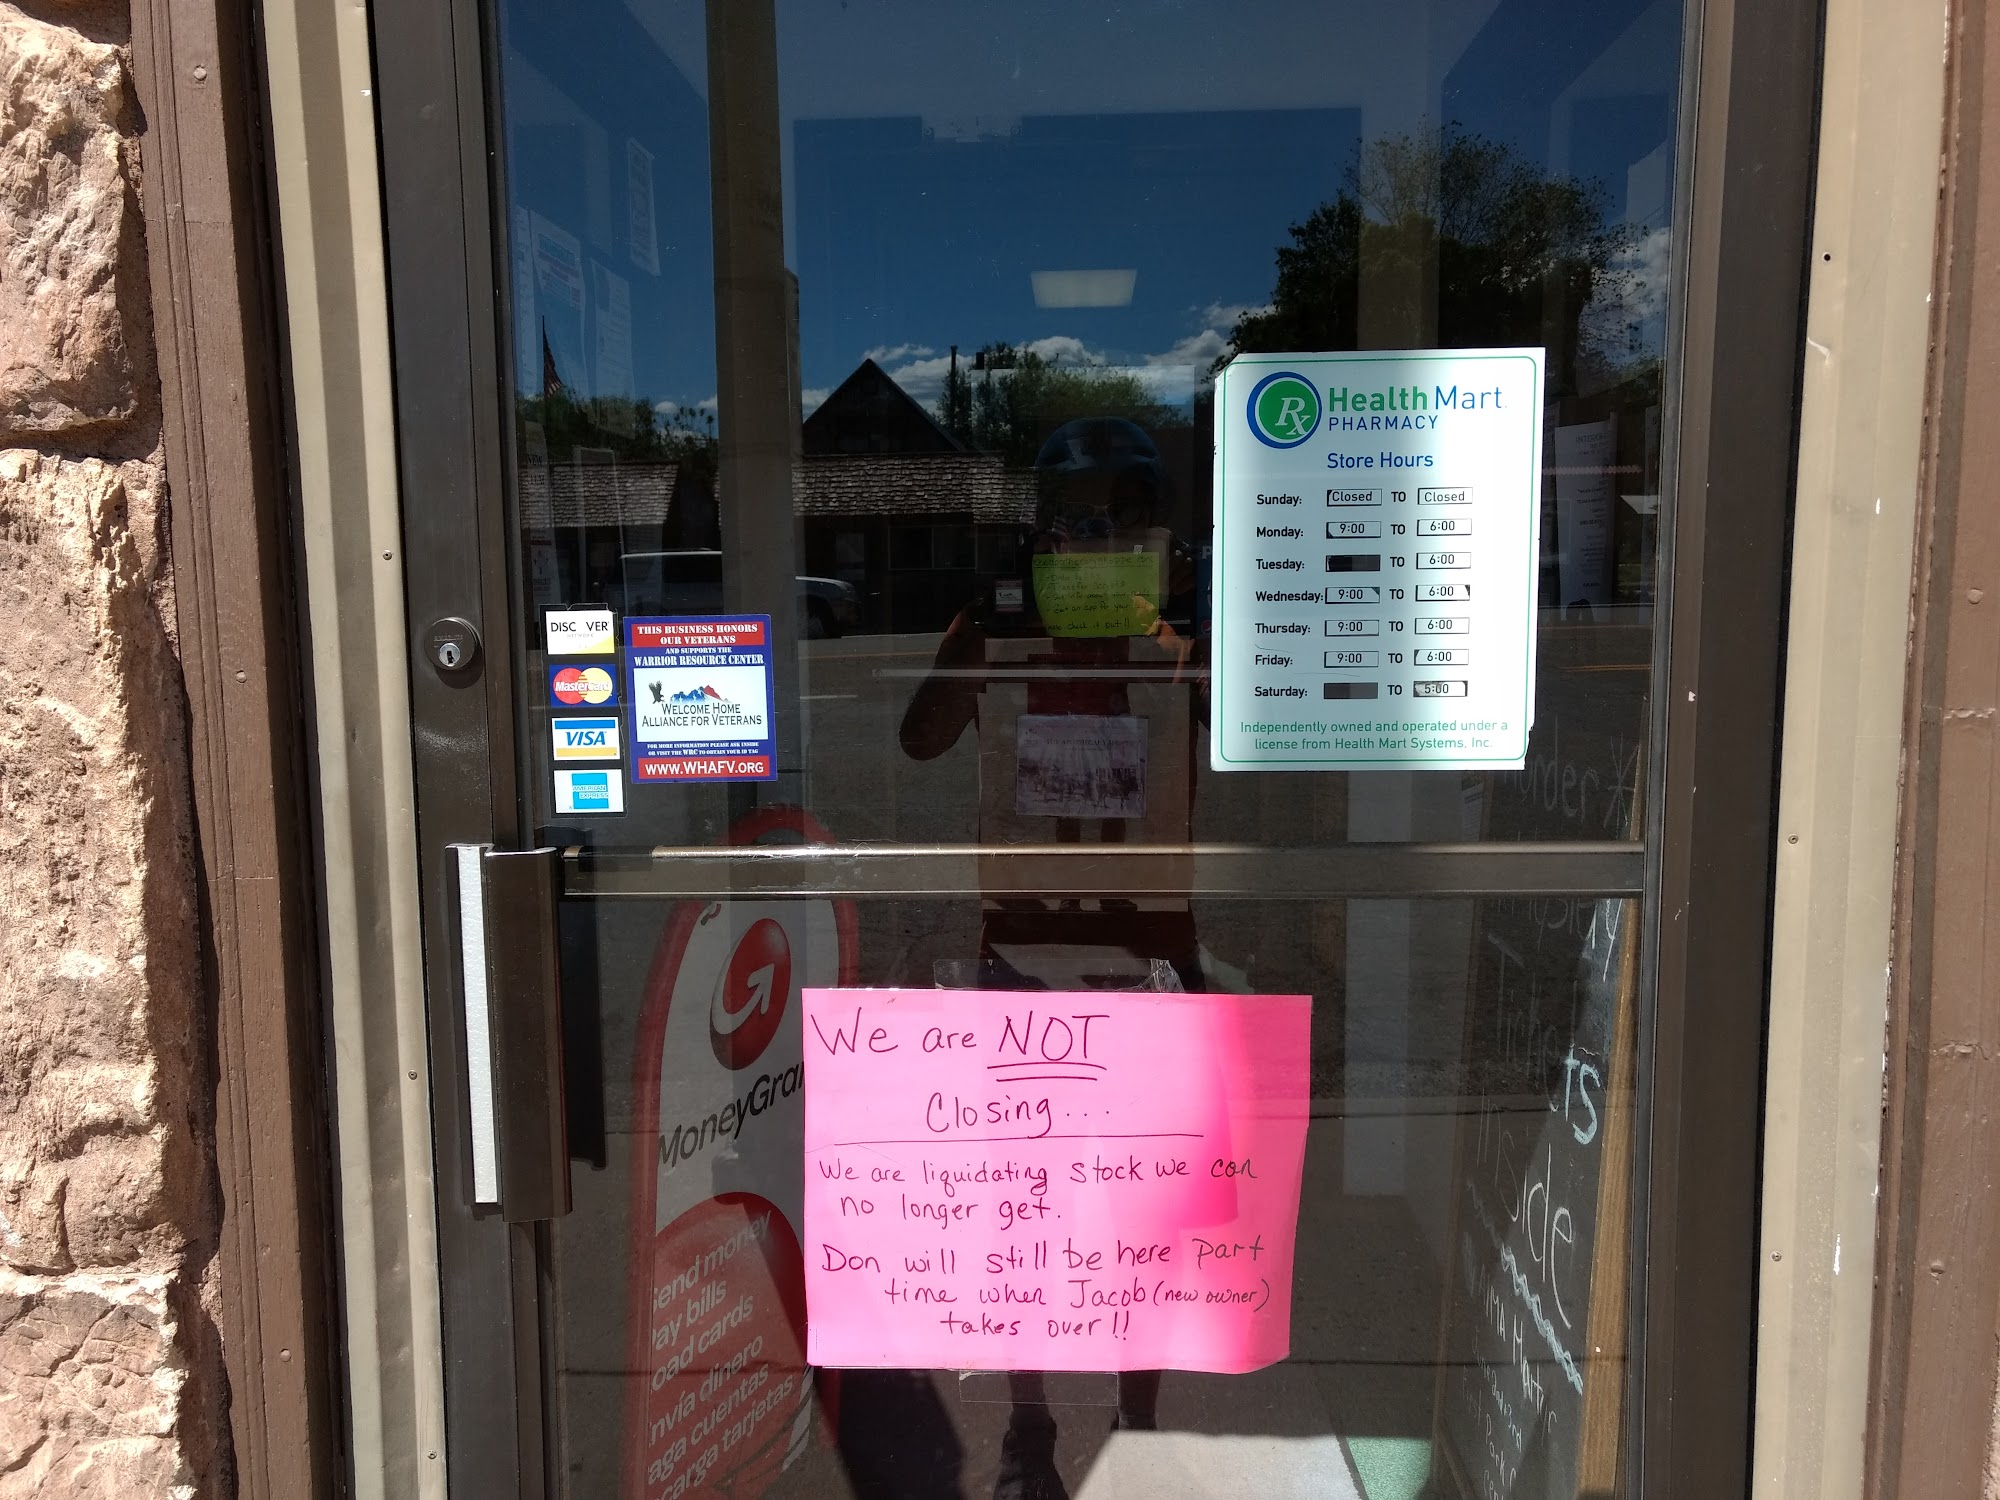 Rx Health Mart.
PHARMACY
Store Hours
Sunday: Closed TO Closed
Monday: 9:00 TO 6:00
Tuesday: TO 6:00
Wednesday: 9:00 TO 6:00
Thursday: 9:00 TO 6:00
Friday: 9:00 TO 6:00
Saturday: TO 5:00
Independently owned and operated under a
license from Health Mart Systems, Inc.
DISC VER
NETWORK
MasterCard
VISA
AMERICAN
EXPRESS
THIS BUSINESS HONORS
OUR VETERANS
AND SUPPORTS THE
WARRIOR RESOURCE CENTER
WELCOME HOME
ALLIANCE FOR VETERANS
FOR MORE INFORMATION PLEASE ASK INSIDE
OR VISIT THE WRC TO OBTAIN YOUR ID TAG
WWW.WHAFV.ORG
MoneyGra
Send money
Pay bills
oad cards
nvía dinero
aga cuentas
carga tarjetas
We are NOT
Closing...
We are liquidating stock we can
no longer get.
Don will still be here part
time when Jacob (new owner)
takes over!!